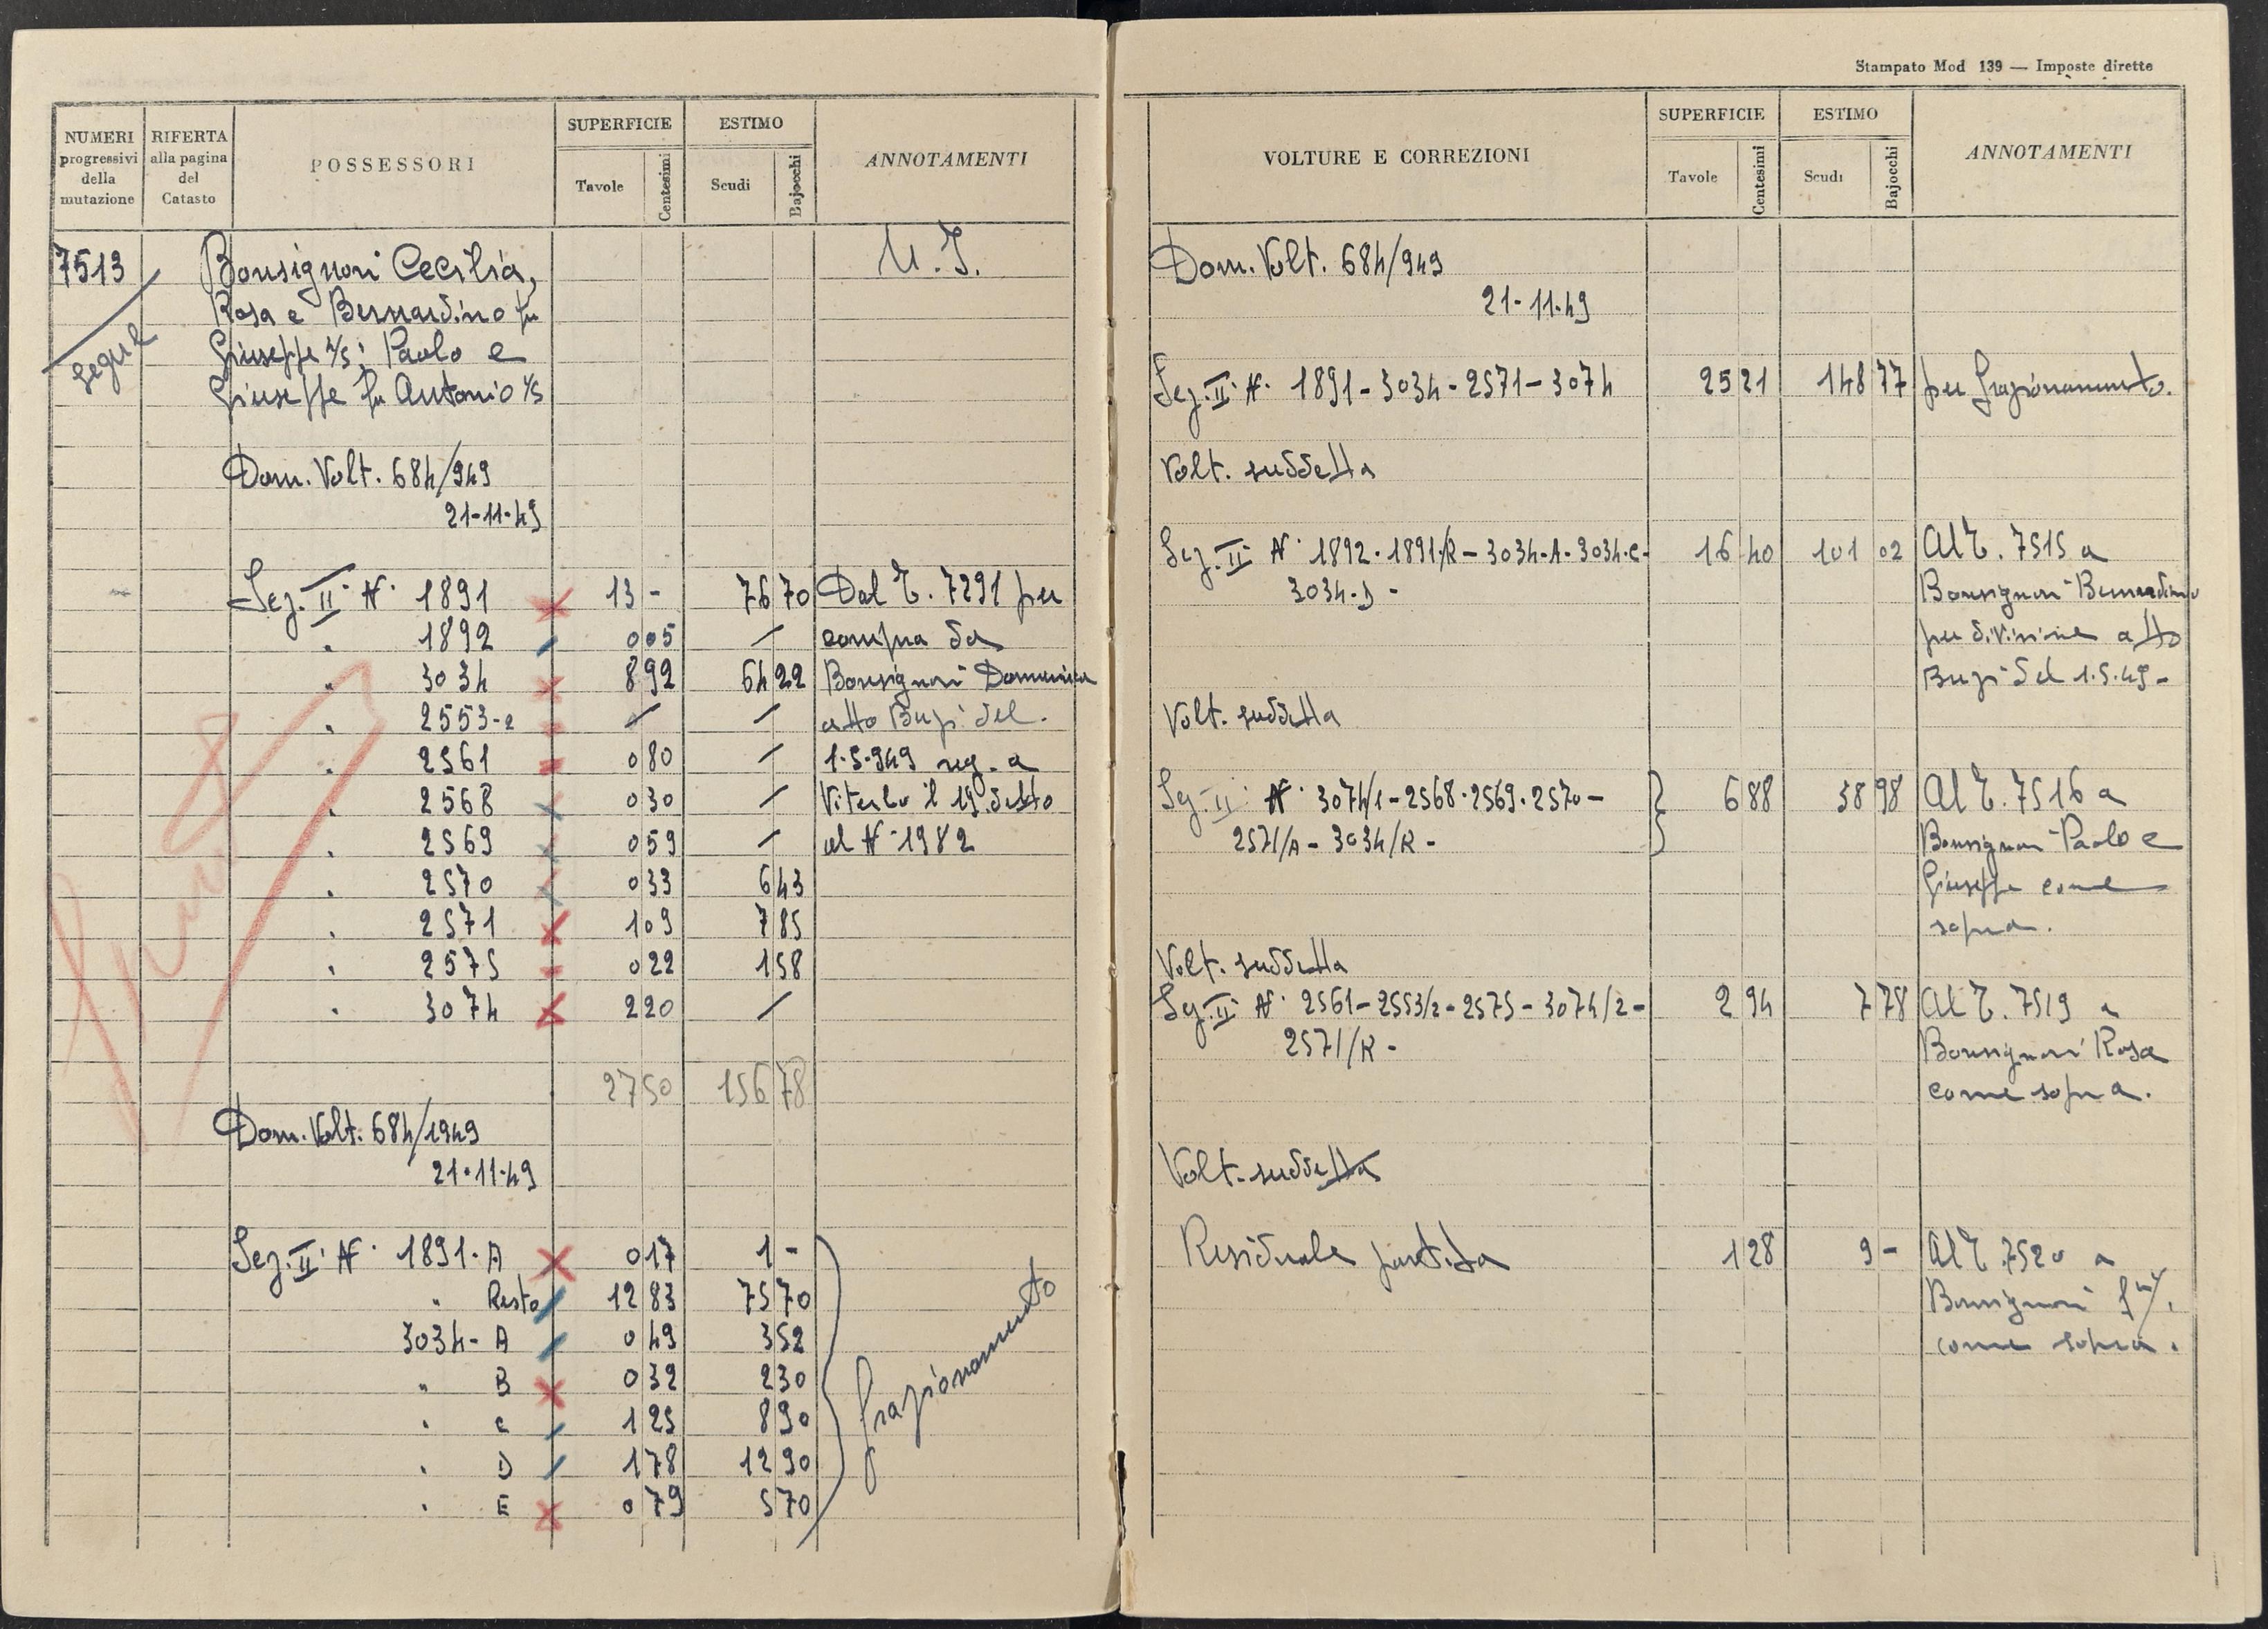 NUMERI progressivi della mutazione | RIFERTA alla pagina del Catasto | POSSESSORI | SUPERFICIE Tavole Centesimi | ESTIMO Scudi Bajocchi | ANNOTAMENTI
7513 Bonsignori Cecilia, U.I.
Rosa e Bernardino fu
segue
Giuseppe 2/3; Paolo e
Giuseppe fu Antonio 1/3
Dom. Volt. 684/949
21-11-49
Sez. II N. 1891 13 - 76 70 Dal T. 7291 per
" 1892 0 05 / compra da
" 3034 8 92 64 22 Bonsignori Domenica
" 2553-2 / / atto Buzi del
" 2561 0 80 / 1-5-949 reg. a
" 2568 0 30 / Viterbo il 19 detto
" 2569 0 59 / al N. 1982
" 2570 0 33 6 43
" 2571 1 09 7 85
" 2575 0 22 1 58
" 3074 2 20 /
27 50 156 78
Dom. Volt. 684/1949
21-11-49
Sez. II N. 1891-A 0 17 1 -
" Resto 12 83 75 70
3034-A 0 49 3 52
" B 0 32 2 30
" C 1 25 8 90
" D 1 78 12 90
" E 0 79 5 70
frazionamento
Stampato Mod 139 — Imposte dirette
VOLTURE E CORREZIONI | SUPERFICIE Tavole Centesimi | ESTIMO Scudi Bajocchi | ANNOTAMENTI
Dom. Volt. 684/949
21-11-49
Sez. II N. 1891-3034-2571-3074 25 21 148 77 per frazionamento.
Volt. suddetta
Sez. II N. 1892-1891/R-3034-A-3034-C- 16 40 101 02 Al T. 7515 a
3034-D - Bonsignori Bernardino
per divisione atto
Buzi del 1-5-49-
Volt. suddetta
Sez. II N. 3074/1-2568-2569-2570- 6 88 38 98 Al T. 7516 a
2571/A-3034/R- Bonsignori Paolo e
Giuseppe come
sopra.
Volt. suddetta
Sez. II N. 2561-2553/2-2575-3074/2- 2 94 7 78 Al T. 7519 a
2571/R- Bonsignori Rosa
come sopra.
Volt. suddetta
Residuale partita 1 28 9 - Al T. 7520 a
Bonsignori
come sopra.